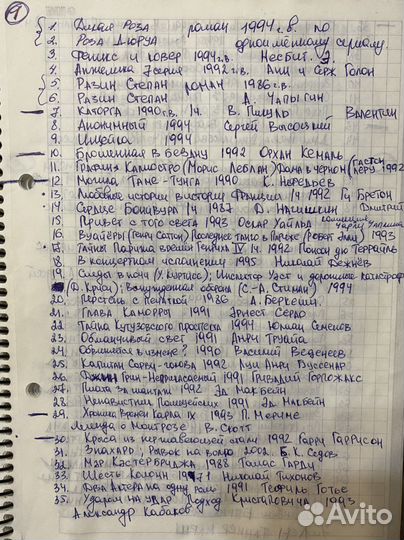 1. Дикая Роза роман 1994г.в. по
2. Роза Дюруа одноименному сериалу.
3. Феникс и ковер 1994г.в. Несбит. Э
4. Анжелика 1992г.в. Анн и Серж Голон
5. Разин Степан роман 1986г.в.
6. Разин Степан А. Чапыгин
7. Каторга 1990г.в. 1ч. В. Пикуль Валентин
8. Анонимный 1994 Сергей Высоцкий
9. Ищейка 1994
10. Брошенная в бездну 1992 Орхан Кемаль
11. Графиня Калиостро (Морис Леблан) Дама в черном (Гастон Леру 1992
12. Могила Таме-Тунга 1990 К.
13. Любовные истории в истории Франции 1ч 1992 Ги Бретон
14. Сердце Бонивура 1ч 1987 Д. Нагишкин Дмитрий
15. Привет с того света 1993 Оскар Уайльд
16. Вуайёры (Генри Саттон) Последнее танго в Париже (Роберт Элли) 1993
17. Тайны Парижа времен Генриха IV 1ч 1992 Понсон дю Террайль
18. В концертном исполнении 1995 Николай Дежнёв
19. Следы в ночи (У. Кертисс); Инспектор Уэст и дорожные катастрофы
(Д. Кризи); Вынужденная оборона (С.-А. Стиман) 1994
20. Перстень с печаткой 1986 А. Беркеши.
21. Глава Каморры 1991 Эрнест Сердо
22. Тайна Кутузовского проспекта 1994 Юлиан Семенов
23. Обманчивый свет 1991 Анри Труайа
24. Обратиться в
 1990 Василий Веденеев
25. Капитан Сорви-голова 1992 Луи Анри Буссенар
26. Джин Грин-Неприкасаемый 1991 Гривадий Горпожакс
27. Плата за шантаж 1992 Эд Макбейн
28. Ненавистник Полицейских 1991 Эд Макбейн
29. Хроника Времен Карла IX 1993 П. Мериме
Легенда о Монтрозе В. Скотт
30. Крыса из нержавеющей стали 1992 Гарри Гаррисон
31. Знахарь; Рывок на волю 2002. Б. К. Седов
32. Мэр Кастербриджа 1988 Томас Гарди
33. Шесть колонн 1971 Николай Тихонов
34. Два актера на одну роль 1991 Теофиль Готье
35. Ударом на удар Подход Кристаповича 1993
Александр Кабаков
Avito